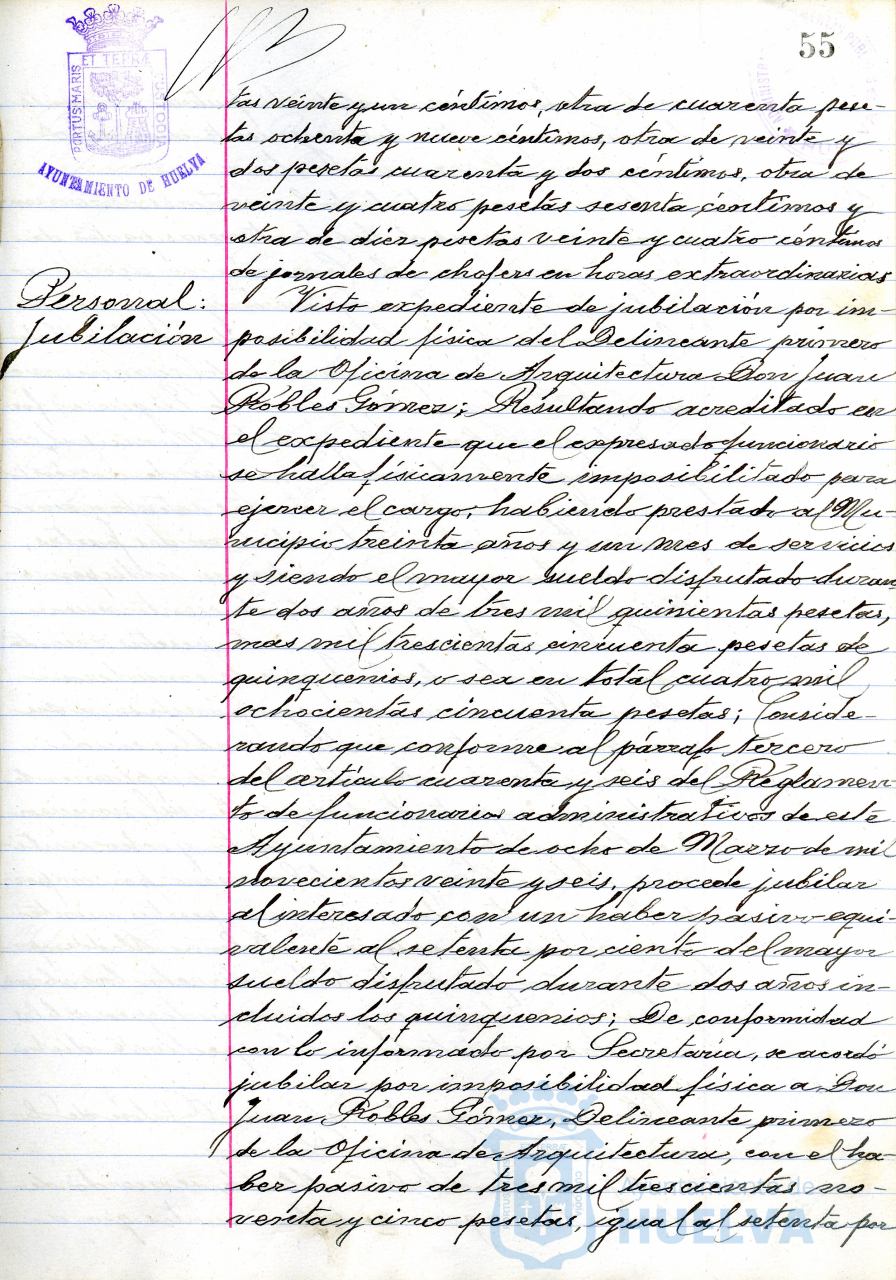 55
PORTUS MARIS
ET TERRÆ
CUSTODIA
AYUNTAMIENTO DE HUELVA
tas veinte y un céntimos, otra de cuarenta pese-
tas ochenta y nueve céntimos, otra de veinte y
dos pesetas cuarenta y dos céntimos, otra de
veinte y cuatro pesetas sesenta céntimos y
otra de diez pesetas veinte y cuatro céntimos
de jornales de chofers en horas extraordinarias
Personal:
Jubilación
Visto expediente de jubilación por im-
posibilidad física del Delineante primero
de la Oficina de Arquitectura Don Juan
Robles Gómez; Resultando acreditado en
el expediente que el expresado funcionario
se halla físicamente imposibilitado para
ejercer el cargo, habiendo prestado al Mu-
nicipio treinta años y un mes de servicios
y siendo el mayor sueldo disfrutado duran
te dos años de tres mil quinientas pesetas,
mas mil trescientas cincuenta pesetas de
quinquenios, o sea en total cuatro mil
ochocientas cincuenta pesetas; Conside-
rando que conforme al párrafo tercero
del artículo cuarenta y seis del Reglamen-
to de funcionarios administrativos de este
Ayuntamiento de ocho de Marzo de mil
novecientos veinte y seis, procede jubilar
al interesado con un haber pasivo equi-
valente al setenta por ciento del mayor
sueldo disfrutado durante dos años in-
cluidos los quinquenios; De conformidad
con lo informado por Secretaría, se acordó
jubilar por imposibilidad física a Don
Juan Robles Gómez, Delineante primero
de la Oficina de Arquitectura, con el ha-
ber pasivo de tres mil trescientas no-
venta y cinco pesetas, igual al setenta por
Ayuntamiento de
HUELVA